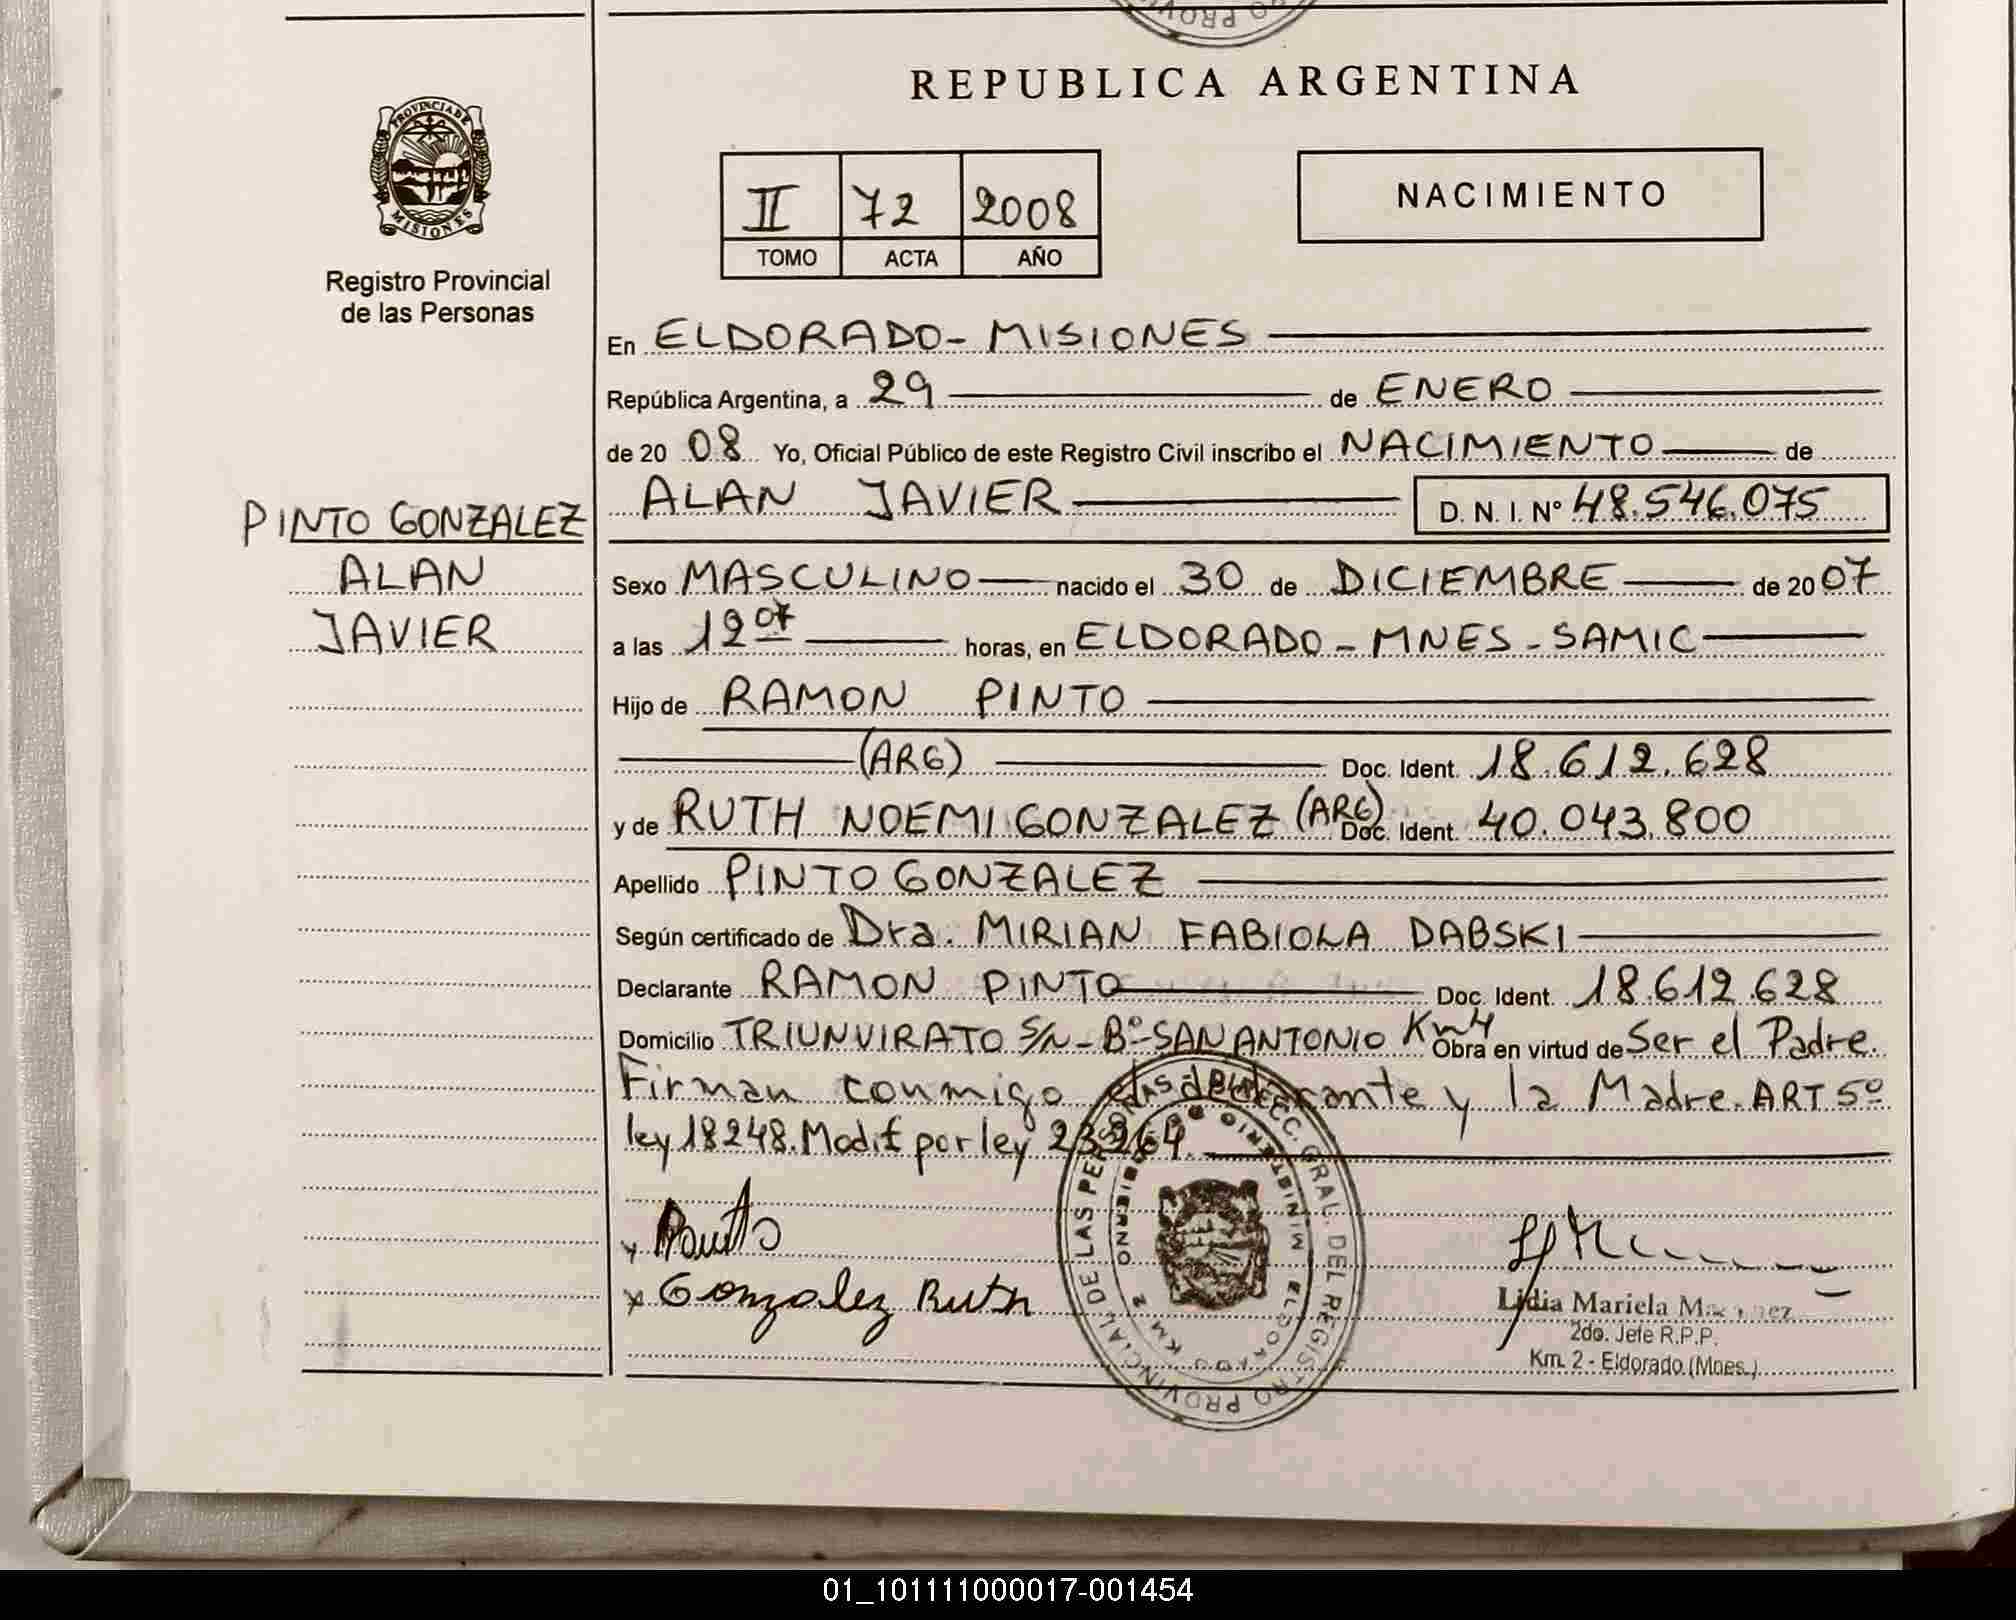 REPUBLICA ARGENTINA
PROVINCIA DE MISIONES
Registro Provincial
de las Personas
II 72 2008
TOMO ACTA AÑO
NACIMIENTO
En ELDORADO - MISIONES
República Argentina, a 29 de ENERO
de 20 08 Yo, Oficial Público de este Registro Civil inscribo el NACIMIENTO de
ALAN JAVIER D. N. I. Nº 48.546.075
PINTO GONZALEZ
ALAN
JAVIER
Sexo MASCULINO nacido el 30 de DICIEMBRE de 20 07
a las 12 07 horas, en ELDORADO - MNES - SAMIC
Hijo de RAMON PINTO
(ARG) Doc. Ident. 18.612.628
y de RUTH NOEMI GONZALEZ (ARG) Doc. Ident. 40.043.800
Apellido PINTO GONZALEZ
Según certificado de Dra. MIRIAN FABIOLA DABSKI
Declarante RAMON PINTO Doc. Ident. 18.612.628
Domicilio TRIUNVIRATO S/N - Bº SAN ANTONIO Km 4 Obra en virtud de Ser el Padre.
Firman conmigo el declarante y la Madre. ART 5º
ley 18248. Modif por ley 23264.
Gonzalez Ruth
DIRECC. GRAL. DEL REGISTRO PROVINCIAL DE LAS PERSONAS
MINISTERIO DE GOBIERNO
ELDORADO KM 2
Lidia Mariela
2do. Jefe R.P.P.
Km. 2 - Eldorado (Mnes.)
01_101111000017-001454